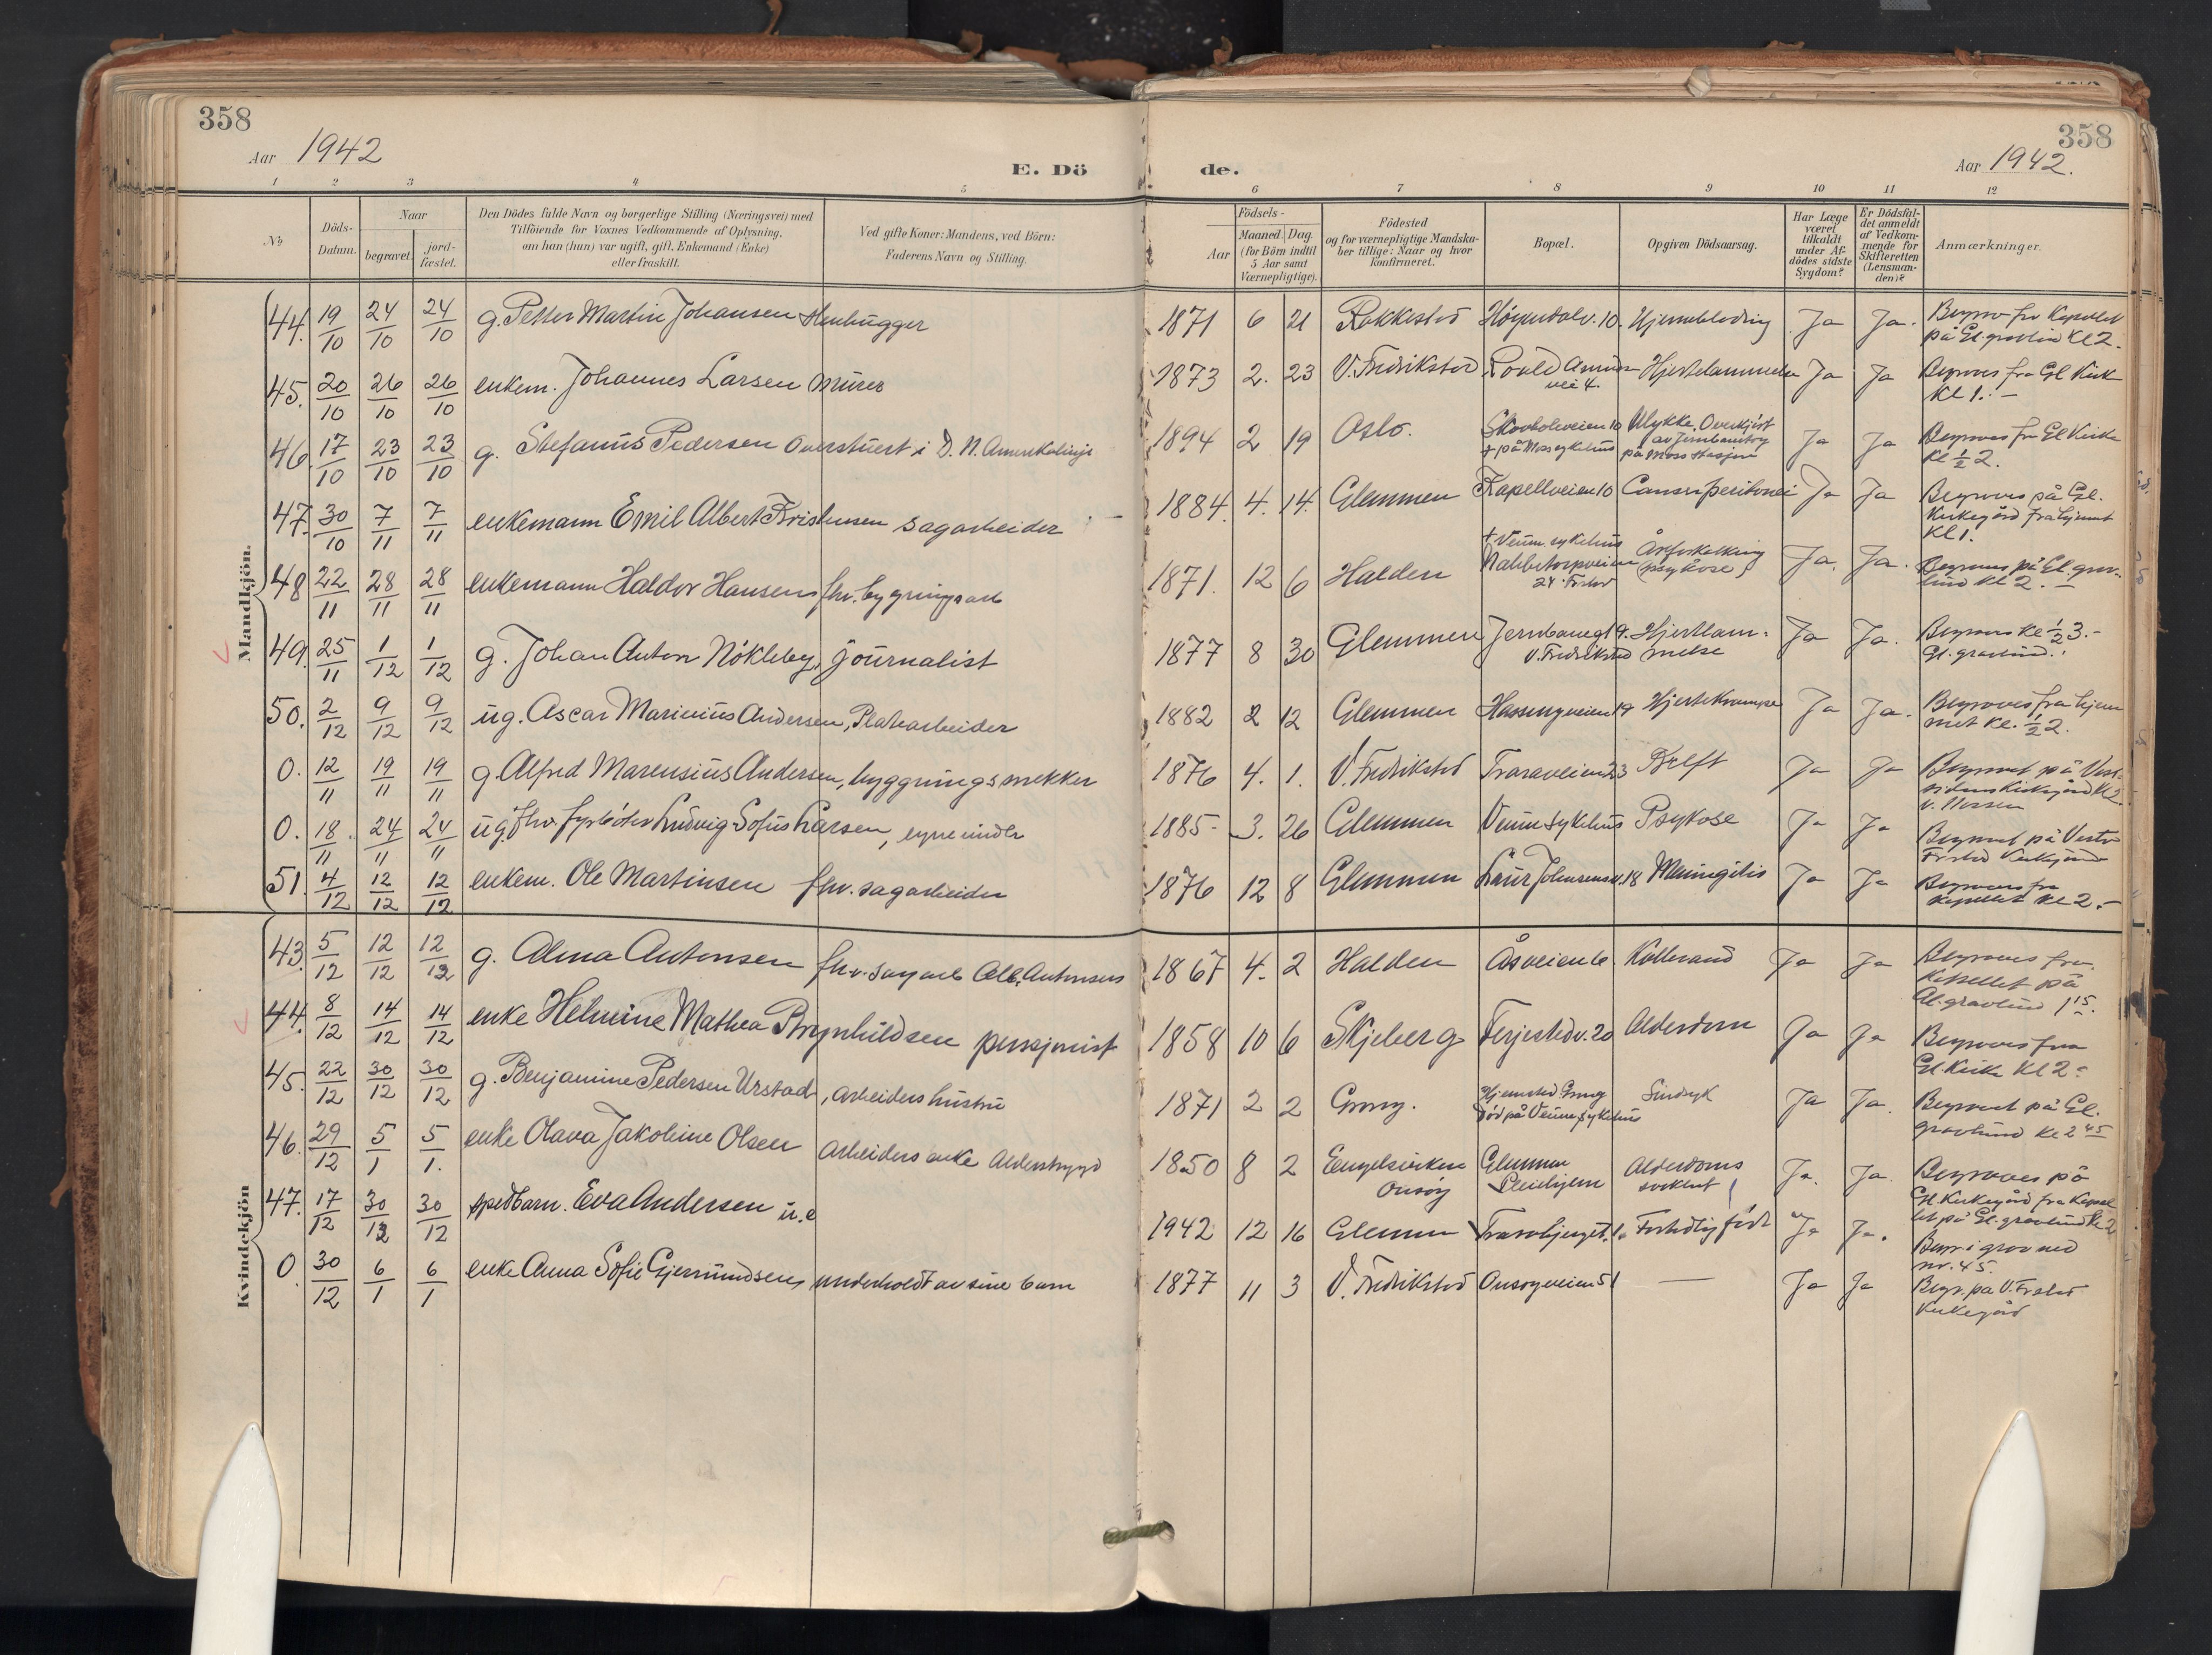 358
Aar 1942
E. Dö
1 2 3 4 5
№
Döds-
Datum.
Naar
begravet.
jord-
fæstet.
Den Dödes fulde Navn og borgerlige Stilling (Næringsvei) med
Tilföiende for Voxnes Vedkommende af Oplysning,
om han (hun) var ugift, gift, Enkemand (Enke)
eller fraskilt.
Ved gifte Koner: Mandens, ved Börn:
Faderens Navn og Stilling.
Mandkjön.
44. 19/10 24/10 24/10 g. Petter Martin Johansen Stenhugger
45. 20/10 26/10 26/10 enkem. Johannes Larsen murer
46. 17/10 23/10 23/10 g. Stefanus Pedersen Overstuert i D. N. Amerikalinje
47. 30/10 7/11 7/11 enkemann Emil Albert Kristensen sagarbeider
48 22/11 28/11 28/11 enkemann Haldor Hansen fhv. bygningsarb
49. 25/11 1/12 1/12 g. Johan Anton Nökleby, journalist
50. 2/12 9/12 9/12 ug. Ascar Marinius Andersen, Platearbeider
0. 12/11 19/11 19/11 g. Alfred Marensius Andersen, byggningssnekker
0. 18/11 24/11 24/11 ug. fhv. fyrböter Ludvig Sofus Larsen,
51. 4/12 12/12 12/12 enkem. Ole Martinsen fhv. sagarbeider
Kvindekjön
43. 5/12 12/12 12/12 g. Alma Antonsen fhv. sagarb Alb. Antonsens
44. 8/12 14/12 14/12 enke Helmine Mathea Brynhildsen pensjonist
45. 22/12 30/12 30/12 g. Benjamine Pedersen Urstad, arbeiders hustru
46. 29/12 5/1 5/1. enke Olava Jakobine Olsen arbeiders enke Alderstrygd
47. 17/12 30/12 30/12 spedbarn. Eva Andersen u.e
0. 30/12 6/1 6/1 enke Anna Sofie Gjermundsen, underholdt av sine barn
358
de.
Aar 1942.
6 7 8 9 10 11 12
Födsels-
Aar
Maaned. Dag.
(for Börn indtil
5 Aar samt
Værnepligtige).
Födested
og for værnepligtige Mandska-
ber tillige: Naar og hvor
konfirmeret.
Bopæl.
Opgiven Dödsaarsag.
Har Læge
været
tilkaldt
under Af-
dödes sidste
Sygdom?
Er Dödsfal-
det anmeldt
af Vedkom-
mende for
Skifteretten
(Lensman-
den)?
Anmærkninger.
1871 6 21 Rakkestad Höyendalv. 10. Hjerneblödning Ja Ja. Begraves fra Kapellet
på Gl. gravlund Kl 2.
1873 2. 23 V. Fredrikstad Roald Amunds
vei 4. Hjertelammelse Ja Ja Begraves fra Gl Kirke
Kl 1. –
1894 2 19 Oslo. Skovboleveien 10
+ på Moss sykehus Ulykke. Overkjört
av Jernbanetog
på Moss Stasjon Ja Ja Begraves fra Gl Kirke
Kl ½ 2.
1884. 4. 14. Glemmen Kapellveien 10 Cancer peritonei Ja Ja Begraves på Gl.
Kirkegård fra hjemmet
Kl 1.
1871. 12 6 Halden + Veum sykehus
Nabbetorpveien
24 Fr.stad Åreforkalkning
(psykose) Ja. Ja. Begraves på Gl. grav-
lund Kl 2. –
1877 8 30 Glemmen Jernbanegt 9.
V. Fredrikstad Hjertelam-
melse Ja Ja. Begraves Kl ½ 3. –
Gl. gravlund.
1882 2 12 Glemmen Hassingveien 19 Hjertekrampe Ja Ja. Begraves fra hjem
met Kl. ½ 2.
1876 4. 1. V. Fredrikstad Traraveien 23 Kreft Ja Ja Begravet på Vest-
sidens Kirkegård Kl 2.
1885 3. 26 Glemmen Veum sykehus Psykose Ja Ja Begravet på Vestre
Fr.stad Kirkegård
1876 12 8 Glemmen Laur Johnsens v. 18 Meningitis Ja Ja Begraves fra
Kapellet Kl 2. –
1867 4. 2 Halden Åsveien 6 Kolbrand Ja Ja Begraves fra
Kapellet på
Gl. gravlund 1 15.
1858 10 6 Skjeberg Ferjestedv. 20 Alderdom Ja Ja Begraves fra
Gl. Kirke Kl 2
1871 2 2 Grong. Hjemsted Grong
död på Veum sykehus Sindsyk Ja Ja. Begravet på Gl.
gravlund Kl 2 45
1850 8 2 Engelsviken
Onsöy Glemmen
Pleiehjem Alderdoms
svekket Ja. Ja. Begraves på
Gl. Kirkegård fra Kapel
let på Gl. gravlund Kl 2
1942 12 16 Glemmen Trarabjerget 1. Fortidlig födt Ja Ja. Begr i grav med
nr. 45.
1877 11 3 V. Fredrikstad Onsöyveien 51 — Ja Ja Begr. på V. Fr.stad
Kirkegård